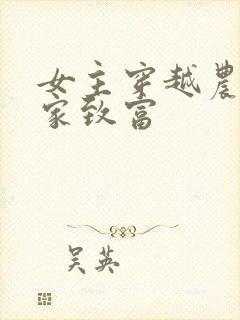 女主穿越農
家致富
吴英